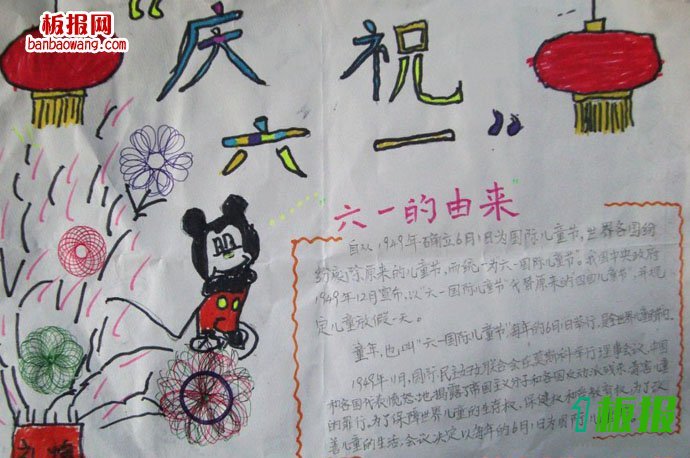 板报网
banbaowang.com
“庆祝
六一”
六一的由来
自从1949年确立6月1日为国际儿童节,世界各国纷
纷废除原来的儿童节,而统一为六一国际儿童节。我国中央政府
1949年12月宣布,以“六一国际儿童节”代替原来的四四儿童节”并规
定儿童放假一天。
童年,也叫“六一国际儿童节”每年的6月1日举行,是全世界儿童的节日
1949年11月,国际民主妇女联合会在莫斯科举行理事会议,中国
和各国代表愤怒地揭露了帝国主义分子和各国反动派残杀、毒害儿童
的罪行。为了保障世界儿童的生存权、保健权和受教育权,为了改
善儿童的生活,会议决定以每年的6月1日为国际儿
1板报